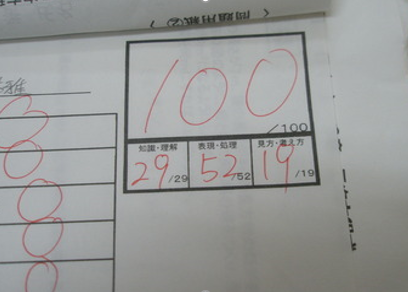 (問題用紙②)
雅
100
/100
知識・理解 表現・処理 見方・考え方
29/29 52/52 19/19